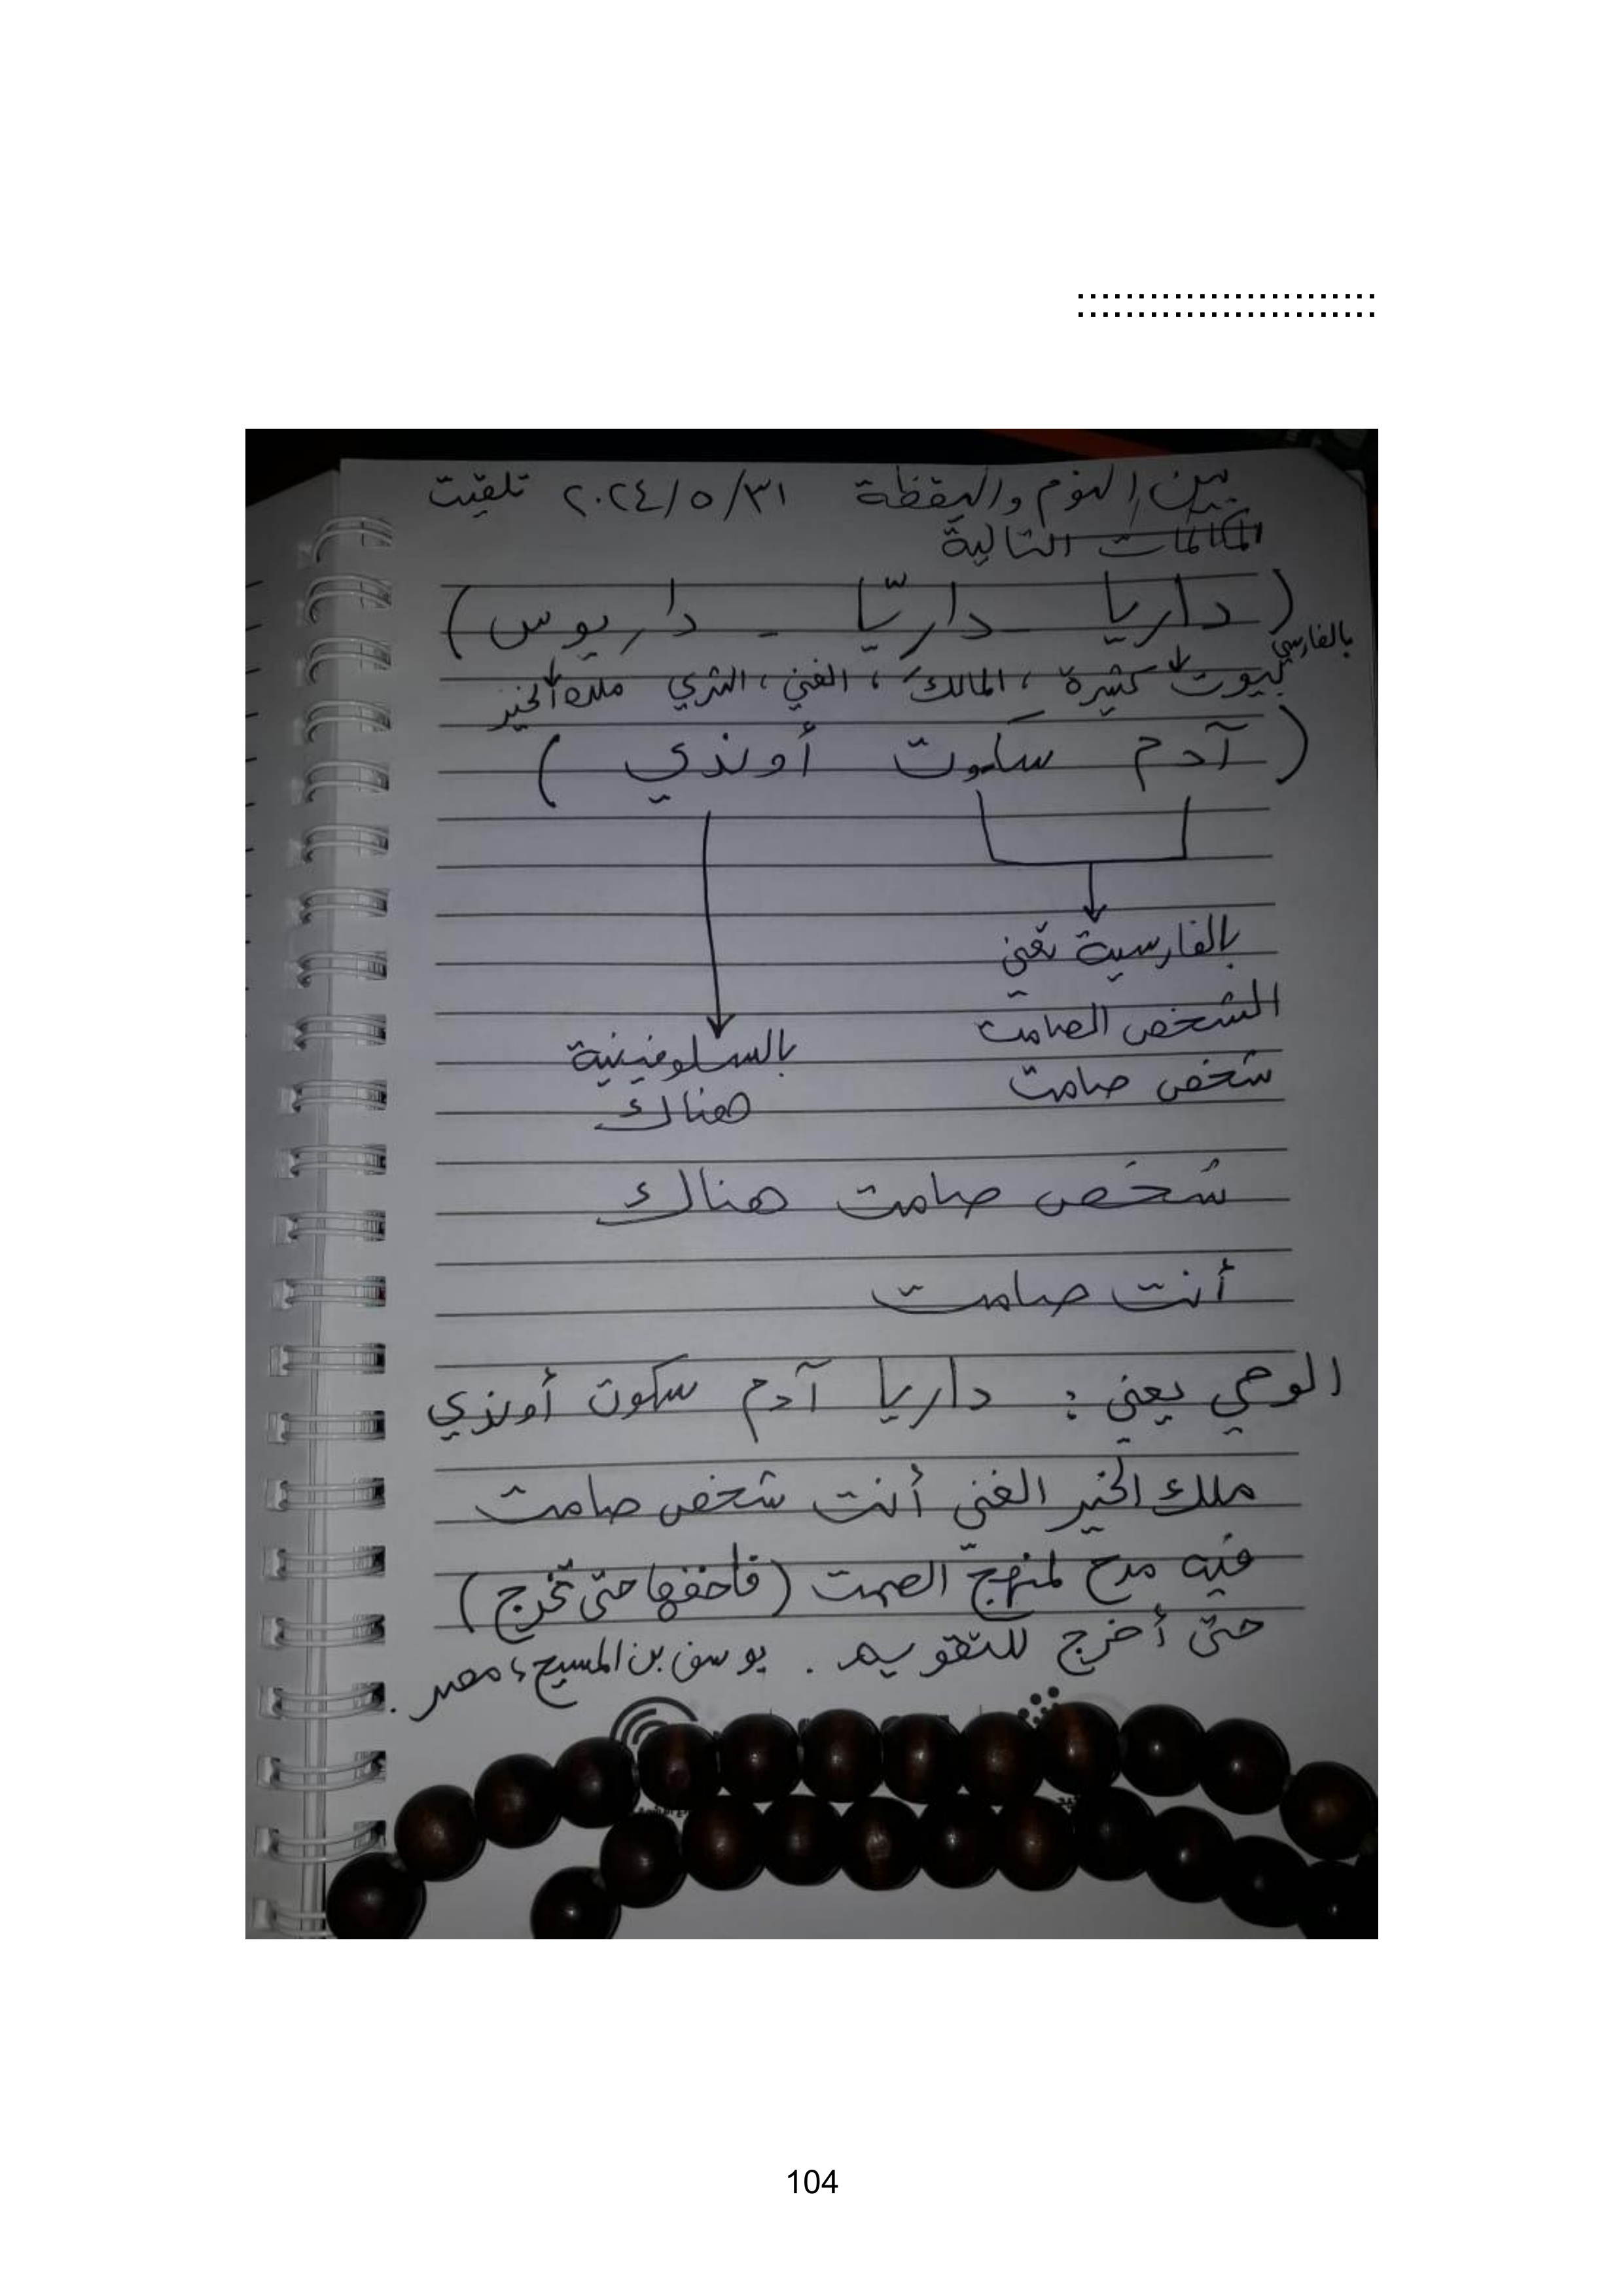 ::::::::::::::::::::::::::
بين النوم واليقظة ٣١/٥/٢٠٢٤ تلقيت
المكالمات التالية
( داريا - داريّا - داريوس )
بالفارسي
بيوت كثيرة ، المالك ، الغني ، الثري ملك الخير
( آدم سكوت أوندي )
بالفارسية تعني
الشخص الصامت
شخص صامت
بالسلوفينية
هناك
شخص صامت هناك
أنت صامت
الوحي يعني : داريا آدم سكوت أوندي
ملك الخير الغني أنت شخص صامت
فيه مدح لمنهج الصمت (فأخفها حتى تخرج)
حتى أخرج للتقويم . يوسف بن المسيح ، مصر .
104